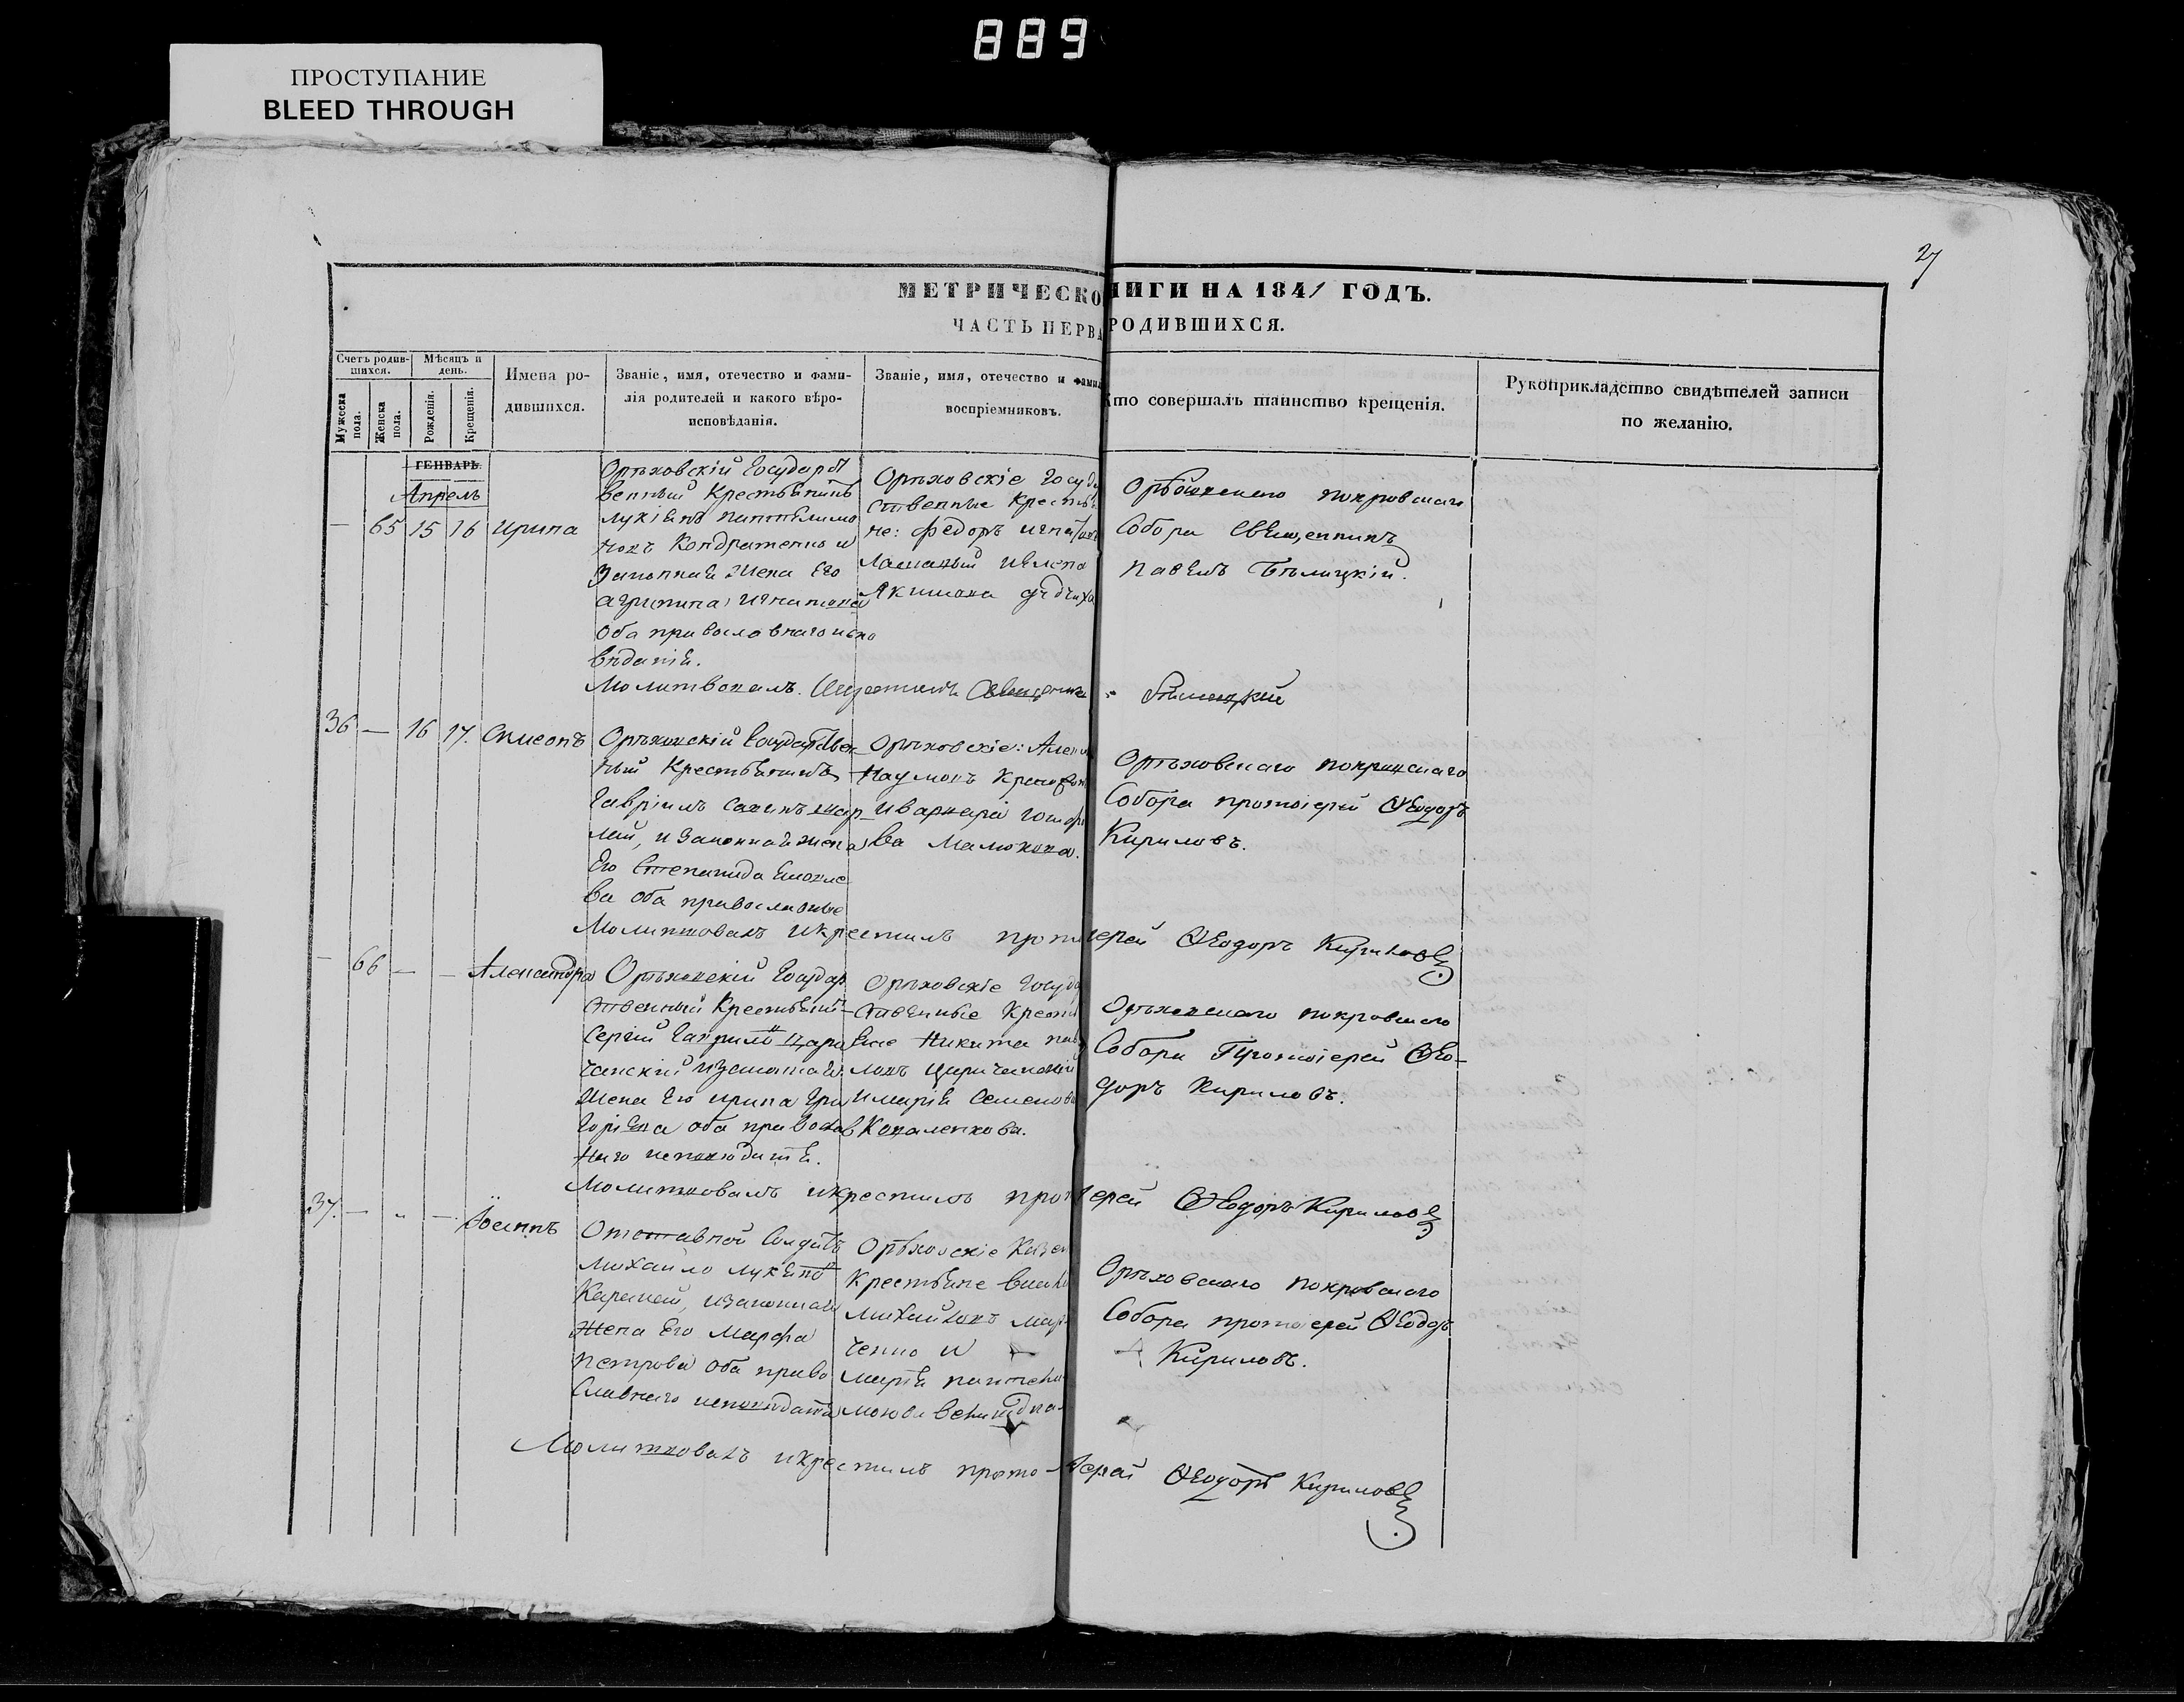 889
ПРОСТУПАНИЕ
BLEED THROUGH
27
МЕТРИЧЕСКО НИГИ НА 1841 ГОДЪ.
ЧАСТЬ ПЕРВА РОДИВШИХСЯ.
Счетъ родив-
шихся.
Мужеска
пола.
Женска
пола.
Мѣсяцъ и
день.
Рожденія.
Крещенія.
Имена ро-
дившихся.
Званіе, имя, отечество и фами-
лія родителей и какого вѣро-
исповѣданія.
Званіе, имя, отечество и фами
воспріемниковъ.
Кто совершалъ таинство крещенія.
Рукоприкладство свидѣтелей записи
по желанію.
ГЕНВАРЬ.
Апрель
— 65 15 16 Ирина
Орѣховскій Государст
венный Крестьянинъ
Лукіянъ
Кондратенко и
Законная Жена Его
Агрипина Игнатова
Оба православнаго испо
вѣданія.
Орѣховскіе Госуда
ственные Крестья
не: Федоръ Игнатовъ
Якимова
Орѣховскаго Покровскаго
Собора Священникъ
Павелъ Бѣлицкій.
Молитвовалъ. Священникъ Бѣлицкій
36 — 16 17. Симеонъ
Орѣховскій Государствен
ный Крестьянинъ
Гавріилъ
и Законная жена
Его Степанида
ва оба православные
Орѣховскіе:
Наумовъ
и Варвара
ва Малюкова.
Орѣховскаго Покровскаго
Собора протоіерей Ѳеодоръ
Кириловъ.
Молитвовалъ и крестилъ протоіерей Ѳеодоръ Кириловъ
— 66 — — Александра
Орѣховскій Государ
ственный Крестьянин
Сергій Гаврилов Цари
чанский и Законная
Жена Его Ирина Гри
горіева оба православ
наго исповѣдания.
Орѣховскіе Госуда
ственные Крестья
яне Никита Пав
ловъ Цариченский
и Марія Семенова
Коваленкова.
Орѣховскаго Покровскаго
Собора Протоіерей Ѳео-
доръ Кириловъ.
Молитвовалъ и крестилъ протоіерей Ѳеодоръ Кириловъ
37. — „ — Іосипъ
Отставной Солдатъ
Михайло Лукьянов
и законная
Жена Его Марфа
Петрова Оба право
славнаго исповѣдания
Орѣховскіе Казен
Крестьяне
Михайловъ Мар
ченко и
Марія Пантели
монова
Орѣховскаго Покровскаго
Собора протоіерей Ѳеодоръ
Кириловъ.
Молитвовалъ и крестилъ протоіерей Ѳеодоръ Кириловъ